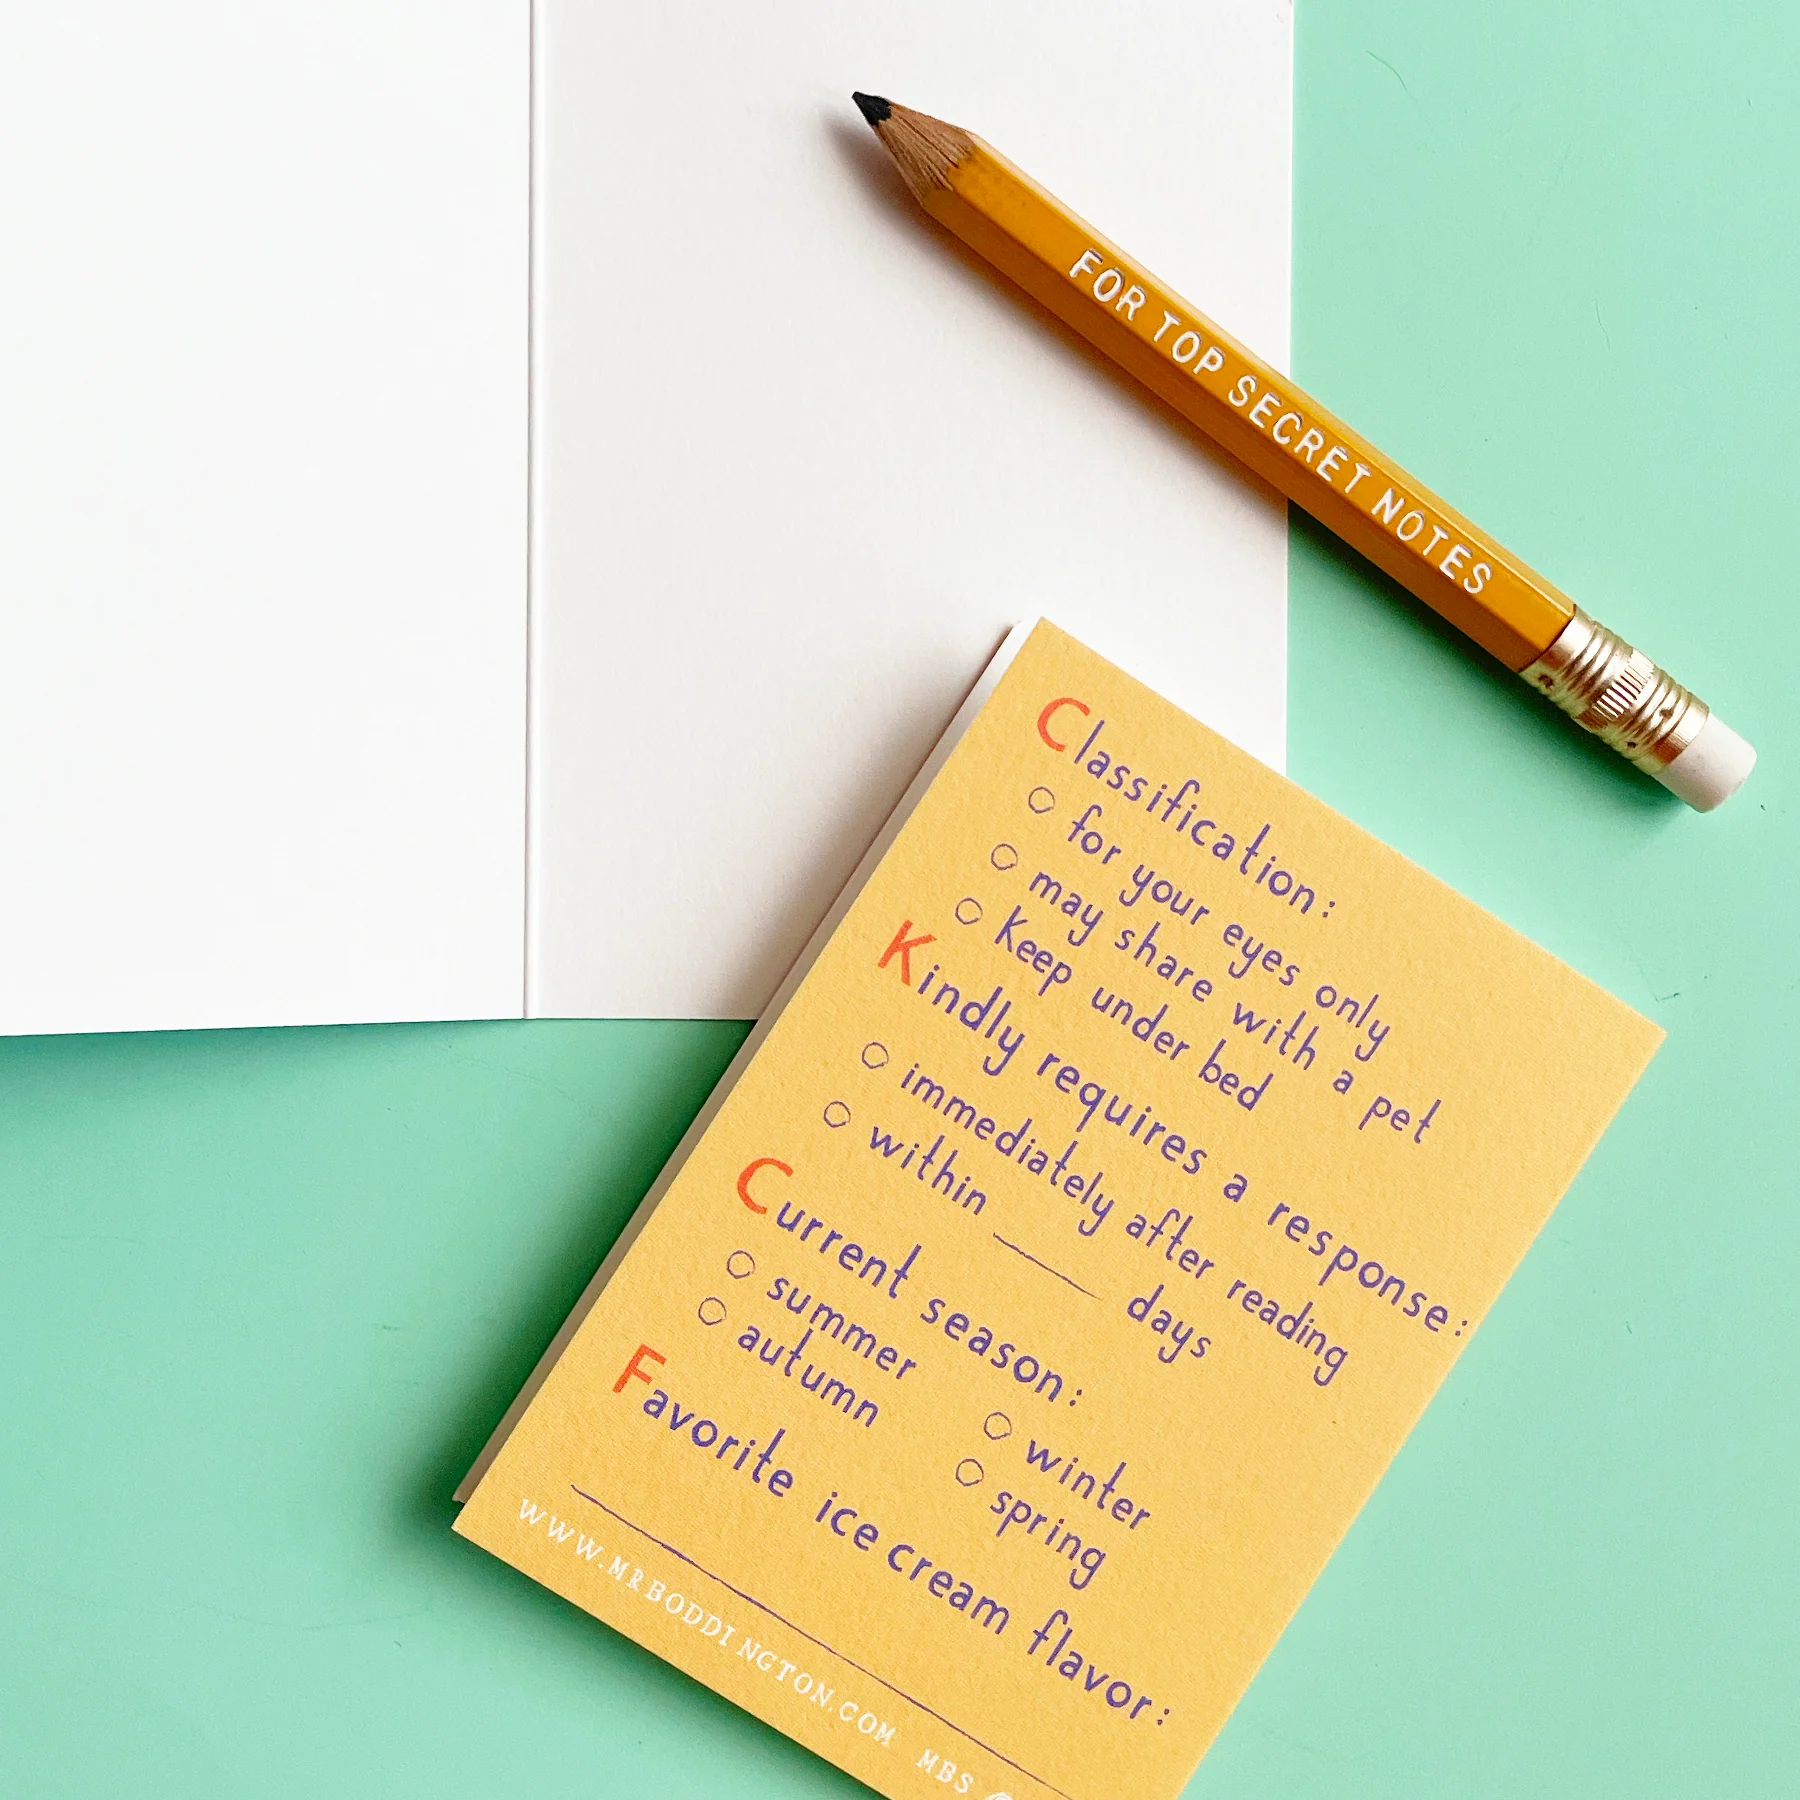 FOR TOP SECRET NOTES
Classification:
for your eyes only
may share with a pet
Keep under bed
Kindly requires a response:
immediately after reading
within ____ days
Current season:
summer winter
autumn spring
Favorite ice cream flavor:
WWW.MRBODDINGTON.COM MBS ©